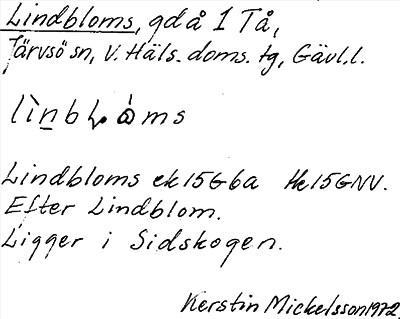 Lindbloms, gd å 1 Tå,
Järvsö sn, V. Häls. doms. tg, Gävl.l.
lìnbLòms
Lindbloms ek 15G6a Hk 15GNV.
Efter Lindblom.
Ligger i Sidskogen.
Kerstin Mickelsson 1972